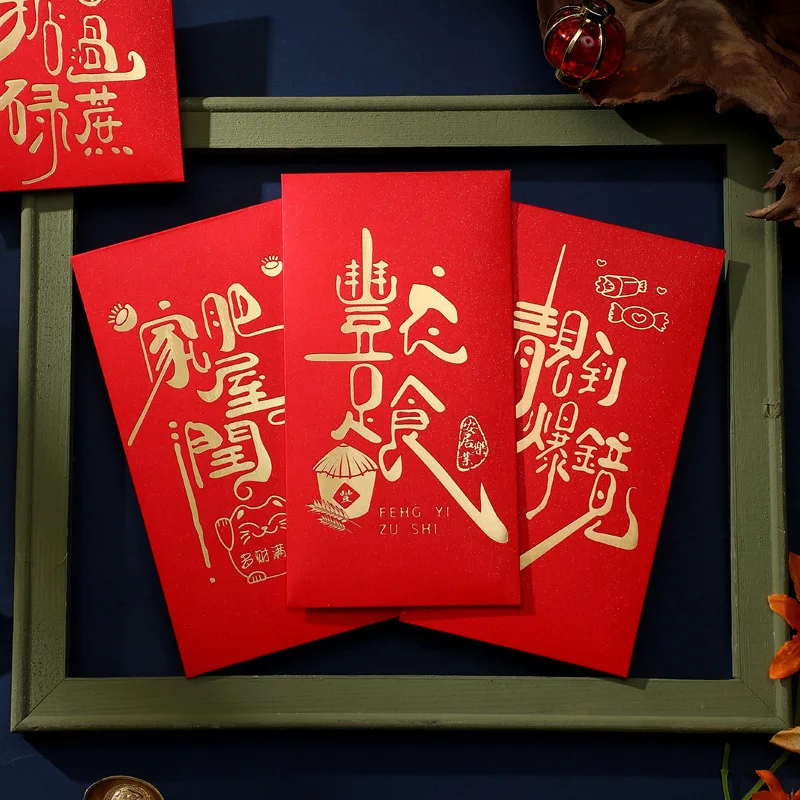 掂過
碌蔗
家肥
屋潤
多财满
豐衣
足食
安居樂業
豐
FEHG YI
ZU SHI
靚到
爆鏡